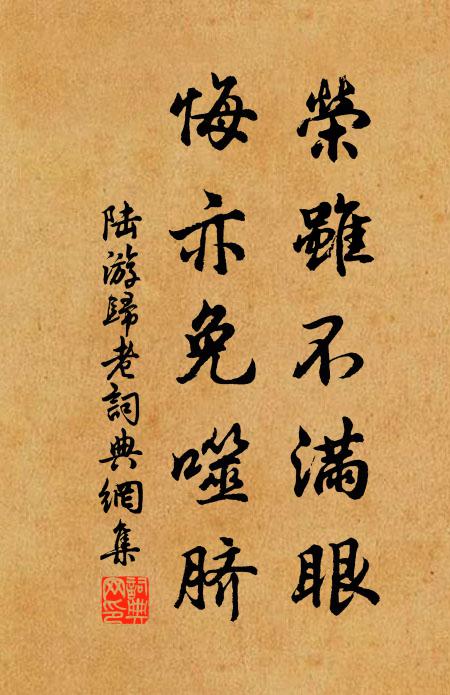 榮雖不滿眼
悔亦免噬脐
陆游歸老詞典網集
詞典網印